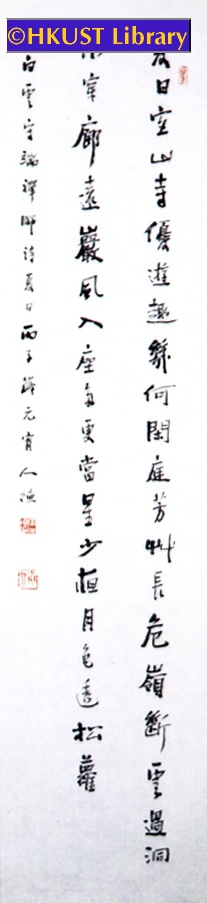 ©HKUST Library
夏日空山寺優遊趣幾何閑庭芳艸長危嶺斷雲過洞
水穿廊遠巖風入座多更當星少夜月色透松蘿
白雲守端禪師詩夏日丙子歲元宵人